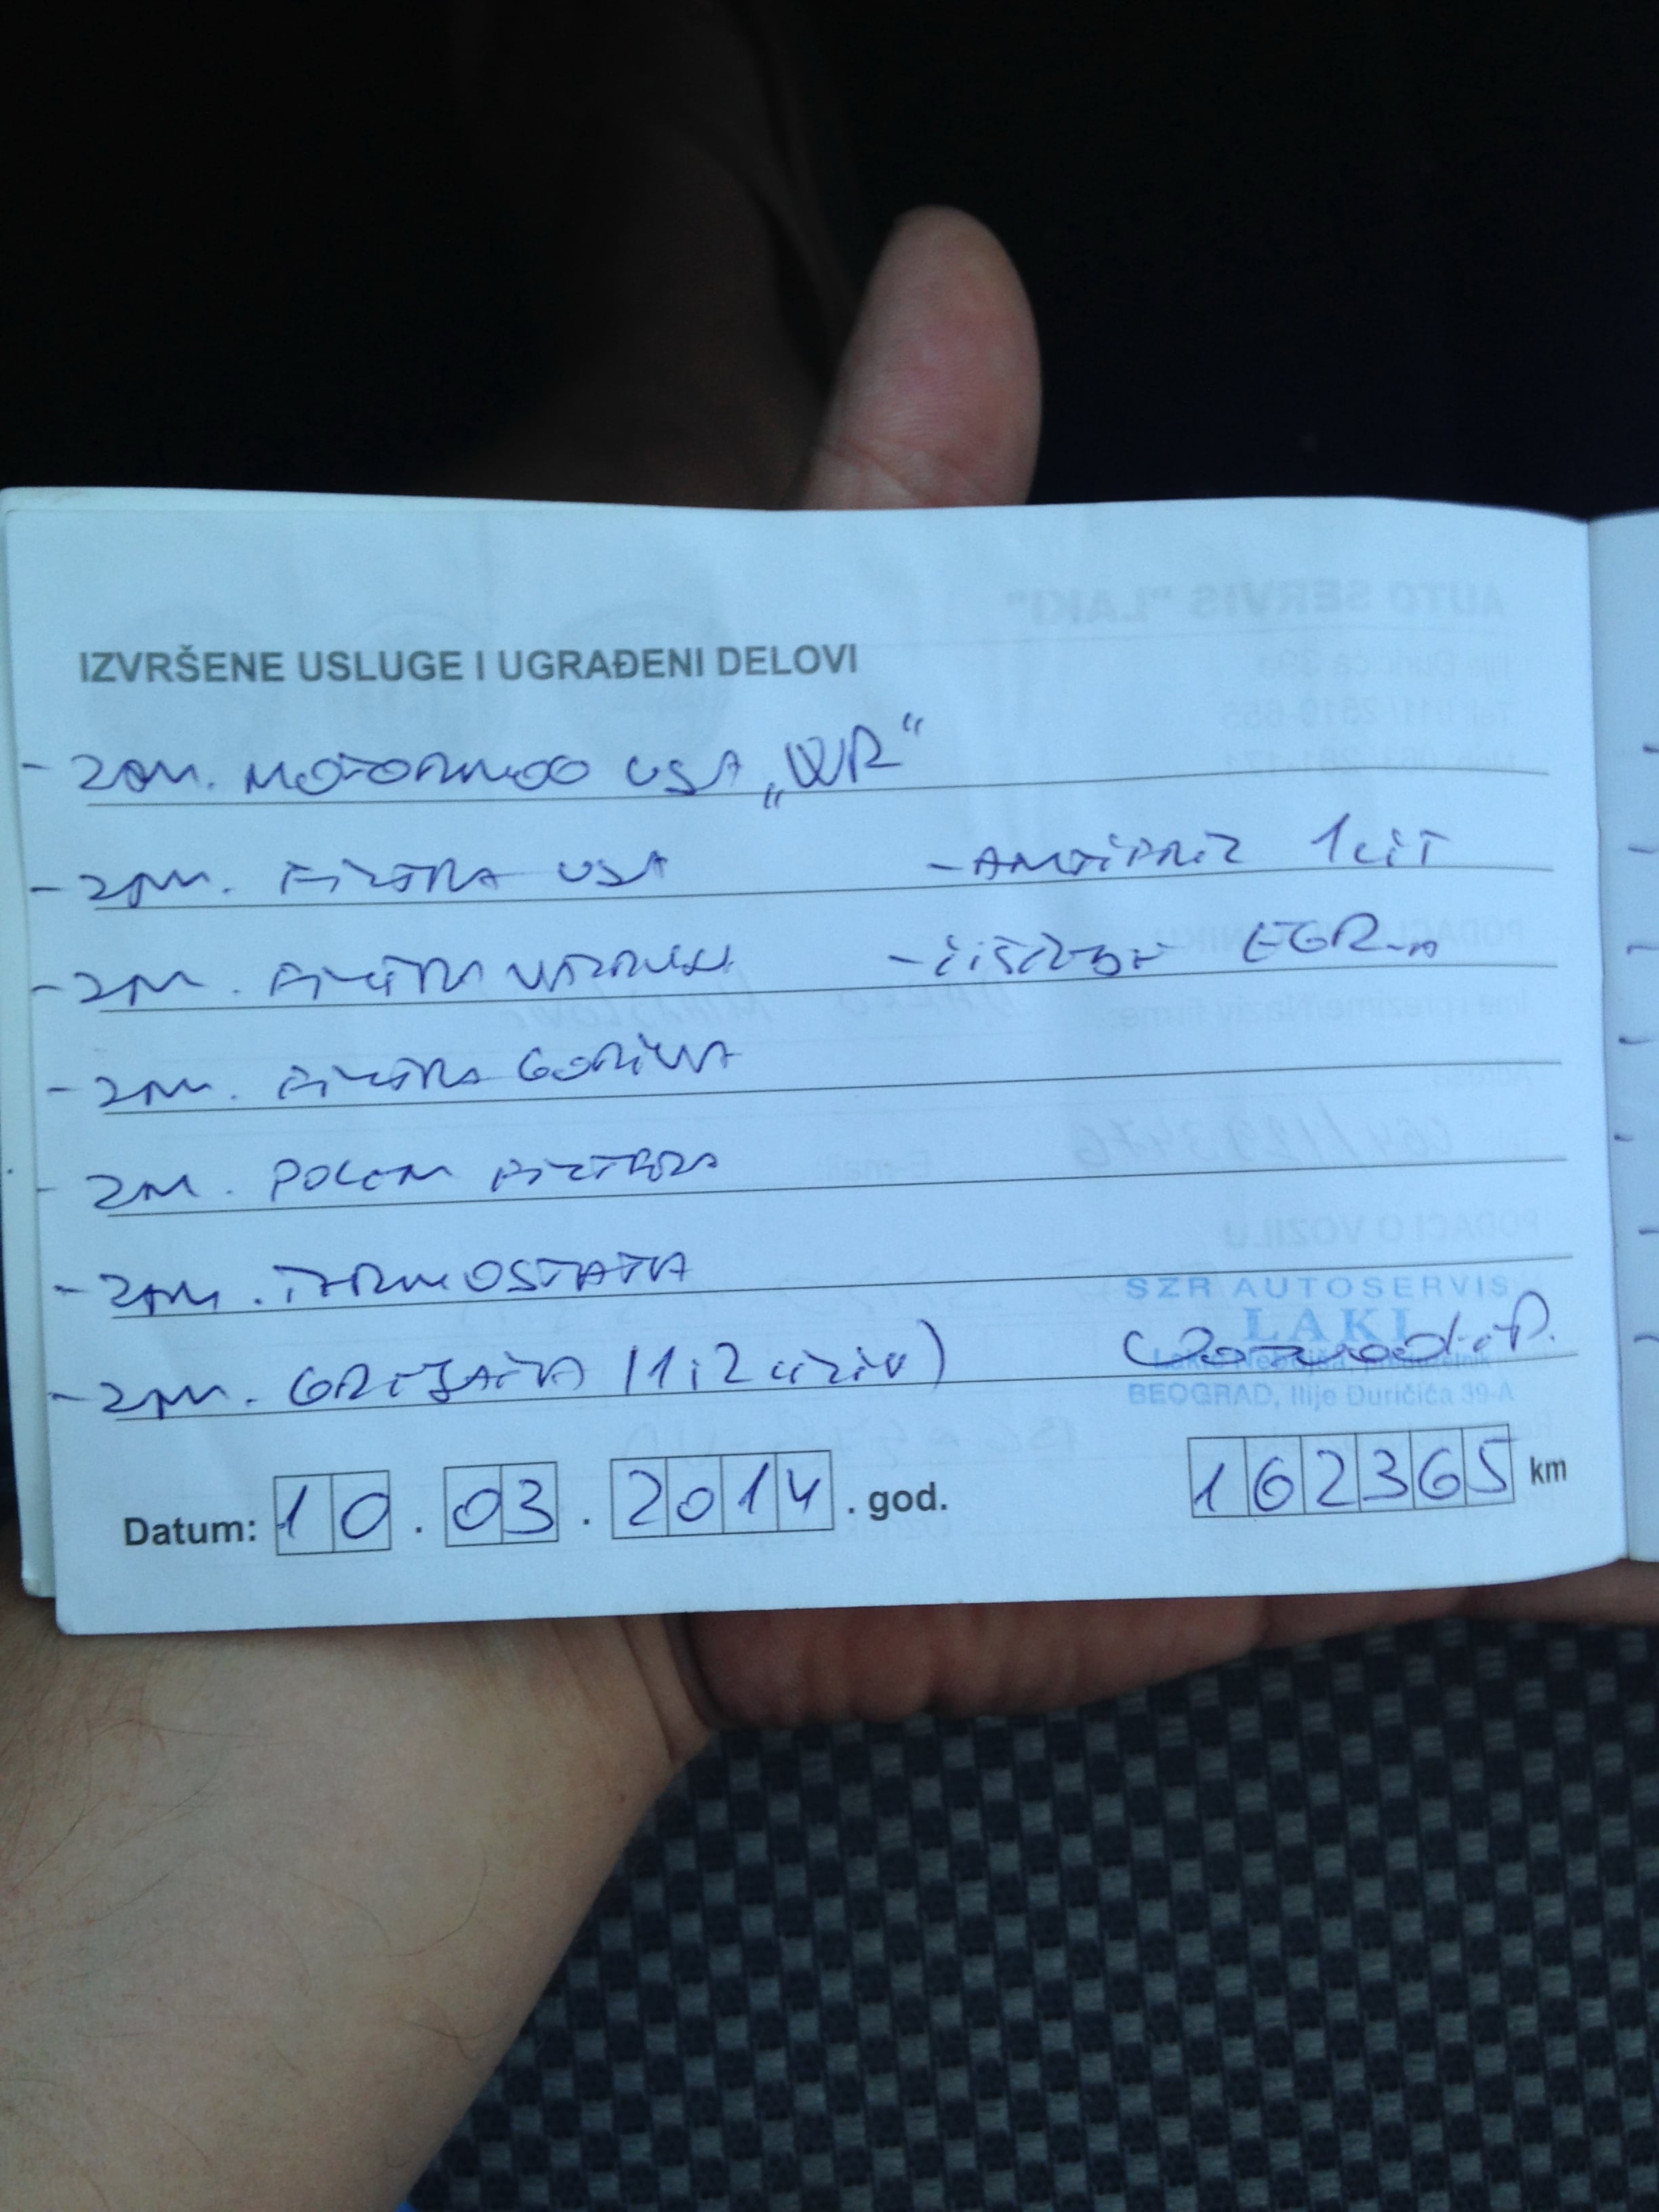 IZVRŠENE USLUGE I UGRAĐENI DELOVI
- ZAM. MOTORNOG ULJA „WR“
- ZAM. FILTRA ULJA - ANTIFRIZ 1 LIT
- ZAM. FILTRA VAZDUHA - ČIŠĆENJE EGR-a
- ZAM. FILTRA GORIVA
- ZAM. POLEN FILTERA
- ZAM. TERMOSTATA
- ZAM. GREJAČA (1 i 2 CILIN)
SZR AUTOSERVIS
LAKI
BEOGRAD, Ilije Đuričića 39-A
Datum: 10.03.2014. god. 162365 km